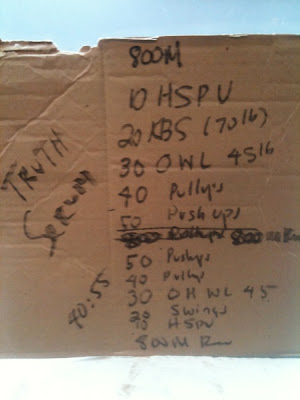 800M
10 HSPU
20 KBS (70lb)
30 OWL 45lb
40 Pullups
50 Push ups
50 Pushups
40 Pullups
30 OH WL 45
20 Swings
10 HSPU
800M Run
TRUTH
SERUM
40:55